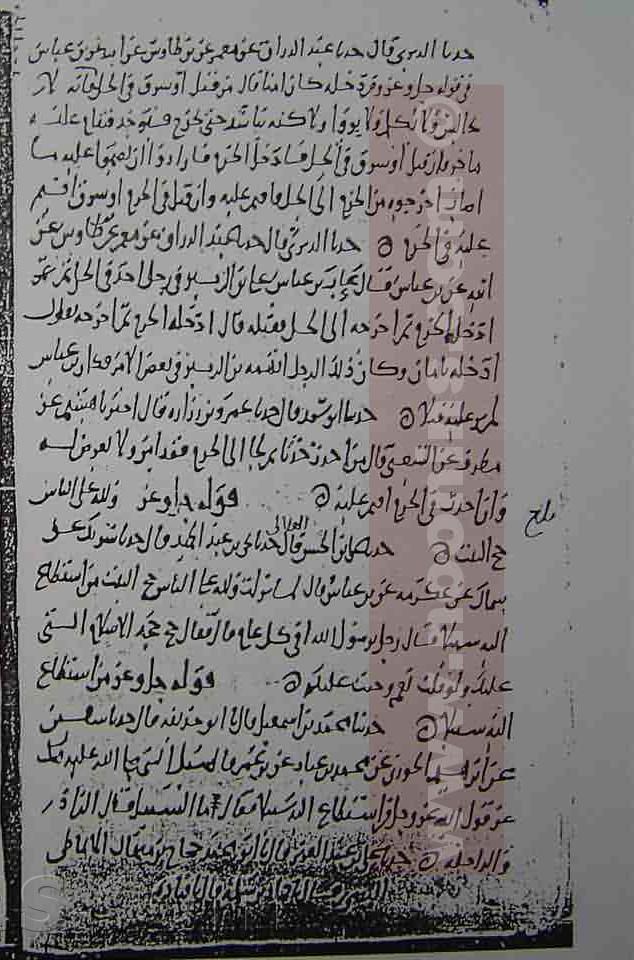 حدثنا الدبري قال حدثنا عبد الرزاق عن معمر عن بن طاوس عن ابيه عن بن عباس
في قوله جل وعز ومن دخله كان امنا قال من قتل او سرق في الحل ثم
يجالس ولا يكلم ولا يووا ولكنه يناشد حتى يخرج فيوخذ فيقام عليه
ما اخذ وان قتل او سرق في الحل فادخل الحرم فارادوا ان يقيموا عليه ما
اصاب اخرجوه من الحرم الى الحل فاقيم عليه وان قتل في الحرم او سرق اقيم
عليه في الحرم حدثنا الدبري قال حدثنا عبد الرزاق عن معمر عن بن طاوس عن
ابيه عن بن عباس قال عاب بن عباس على بن الزبير في رجل اخذ في الحل ثم
ادخله الحرم ثم اخرجه الى الحل فقتله قال ادخله الحرم ثم اخرجه يقول
ادخله بامان وكان ذلك الرجل اتهمه بن الزبير في بعض الامر وكان بن عباس
لم ير عليه قتلا حدثنا ابو سعد قال حدثنا عمرو بن زراره قال اخبرنا هشيم عن
مطرف عن الشعبي قال من احدث حدثا ثم لجا الى الحرم فقد امن ولا يعرض له
وان احدث في الحرم اقيم عليه قوله جل وعز ولله على الناس
حج البيت حدثنا علان بن الحسن قال حدثنا يحيى بن عبد الحميد قال حدثنا شريك عن
سماك عن عكرمه عن بن عباس قال لما نزلت ولله على الناس حج البيت من استطاع
اليه سبيلا فقال رجل يرسول الله افي كل عام قال فقال حج حجه الاسلام التي
عليك ولو قلت نعم وجبت عليكم قوله جل وعز من استطاع
اليه سبيلا حدثنا محمد بن اسمعيل قال ابو حذيفه قال حدثنا سفين
عن ابراهيم الخوزي عن محمد بن عباد عن بن عمر قال سئل النبي صلى الله عليه
عن قول الله عز وجل من استطاع اليه سبيلا فقال ما السبيل فقال الزاد
والراحله حدثنا علي بن عبد العزيز قال حجاج بن منهال الانماطي
بلغ